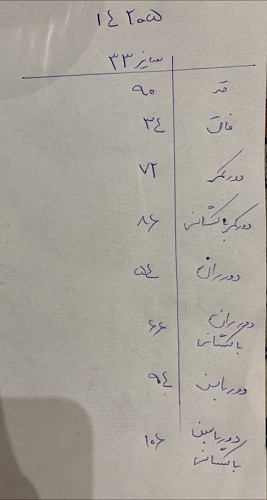 ۱۴۲۰۵۵
سایز ۳۳
قد ۹۰
فاق ۳۴
دور کمر ۷۲
دور کمر با کشسانی ۸۶
دور ران ۵۴
دور ران با کشسانی ۶۶
دور باسن ۹۴
دور باسن با کشسانی ۱۰۶